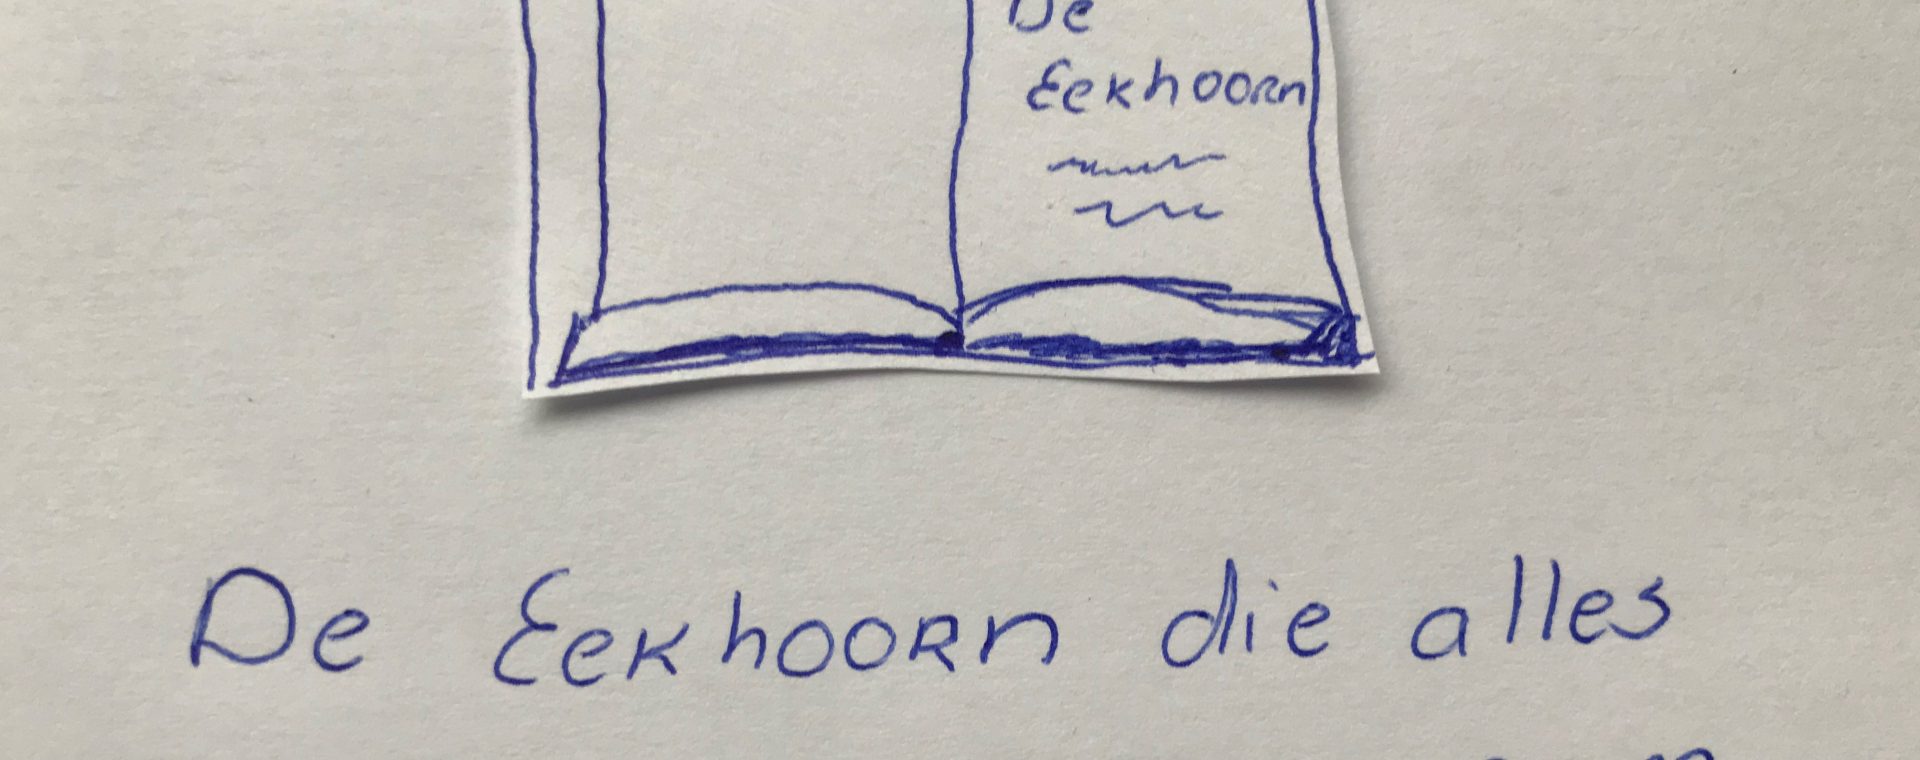 De
Eekhoorn
De Eekhoorn die alles